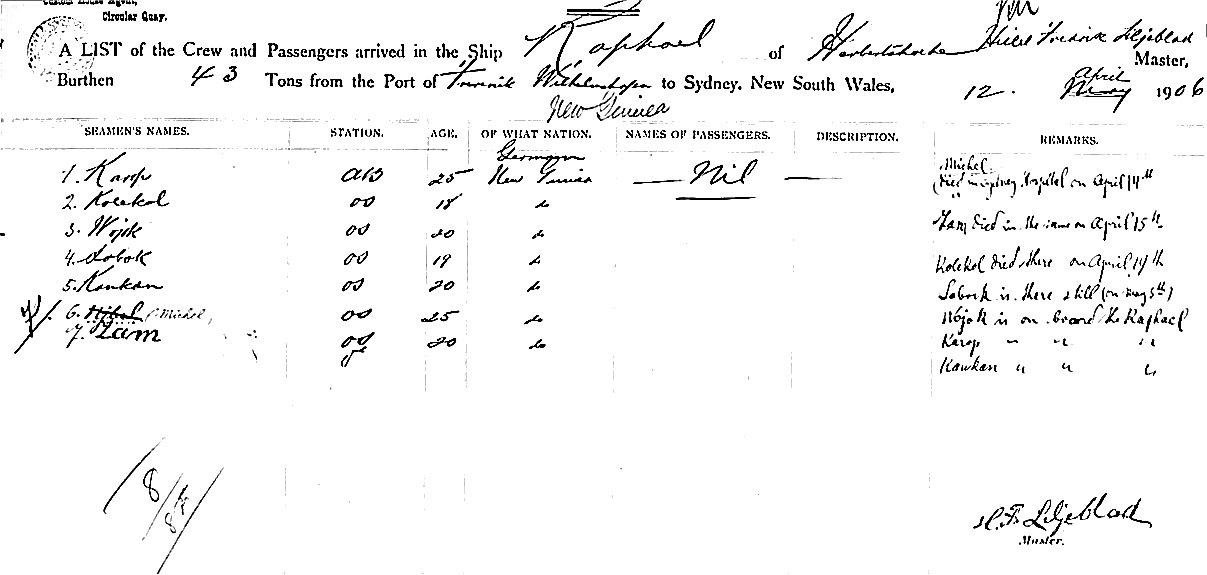 Custom House Agent,
Circular Quay.
A LIST of the Crew and Passengers arrived in the Ship Raphael of Herbertshohe Fredrik Liljeblad Master,
Burthen 43 Tons from the Port of Wilhelmshafen to Sydney, New South Wales, 12. April May 1906
New Guinea
SEAMEN'S NAMES. STATION. AGE. OF WHAT NATION. NAMES OF PASSENGERS. DESCRIPTION. REMARKS.
German
1. Karop AB 25 New Guinea Nil Michel died in Sydney Hospital on April 14th
2. Kolekol OS 18 do
3. Wojok OS 20 do Zam died in the same on April 15th
4. Sobok OS 19 do Kolekol died there on April 19th
5. Kaukan OS 20 do Sobok is there still (on May 5th)
6. OS 25 do Wojok is on board the Raphael
7. Zam OS 20 do Karop " " "
Kaukan " " "
8/
H. F. Liljeblad
Master.